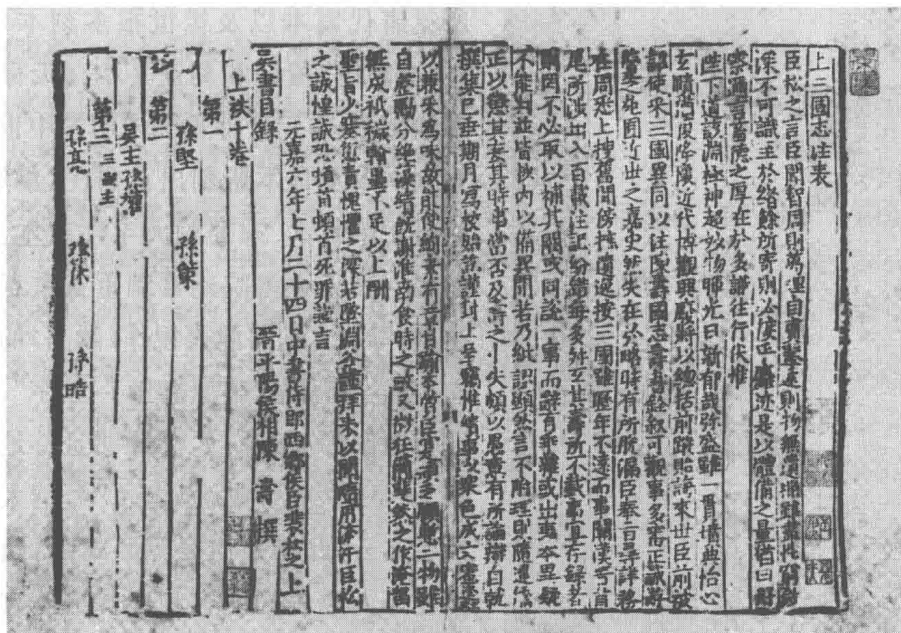 上三國志注表
臣松之言臣聞智周則萬理自賓鑒遠則物無遺照雖盡性窮微
深不可識至於緒餘所寄則必接乎麤迹是以體備之量猶曰好
察邇言畜德之厚在於多識往行伏惟
陛下道該淵極神超妙物暉光日新郁哉弥盛雖一貫墳典怡心
玄賾猶復降懷近代博觀興廢將以總括前蹤貽誨來世臣前被
詔使采三國異同以注陳壽國志壽書銓叙可觀事多審正誠游
覽之苑囿近世之嘉史然失在於略時有所脫漏臣奉旨尋詳務
在周悉上搜舊聞傍摭遺逸按三國雖歷年不遠而事關漢晉首
尾所涉出入百載注記紛錯每多舛互其壽所不載事宜存錄者
則罔不必取以補其闕或同說一事而辭有乖雜或出事本異疑
不能判並皆抄內以備異聞若乃紕謬顯然言不附理則隨違矯
正以懲其妄其時事當否及壽之小失頗以愚意有所論辯自就
撰集已垂期月寫校始訖謹封上呈竊惟繢事以衆色成文蜜蜂
以兼采爲味故能使絢素有章甘踰本質臣寔頑乏顧慙二物雖
自罄勵分絶藻繢既謝淮南食時之敏又微狂簡斐然之作淹留
無成祗穢翰墨不足以上酬
聖旨少塞愆責愧懼之深若墜淵谷謹拜表以聞隨用流汗臣松
之誠惶誠恐頓首頓首死罪謹言
元嘉六年七月二十四日中書侍郎西鄉侯臣裴松之上
吳書目錄 晉平陽侯相陳 壽 撰
上袟十卷
第一
孫堅 孫策
第二
吳主孫權
第三 三嗣主
孫亮 孫休 孫皓